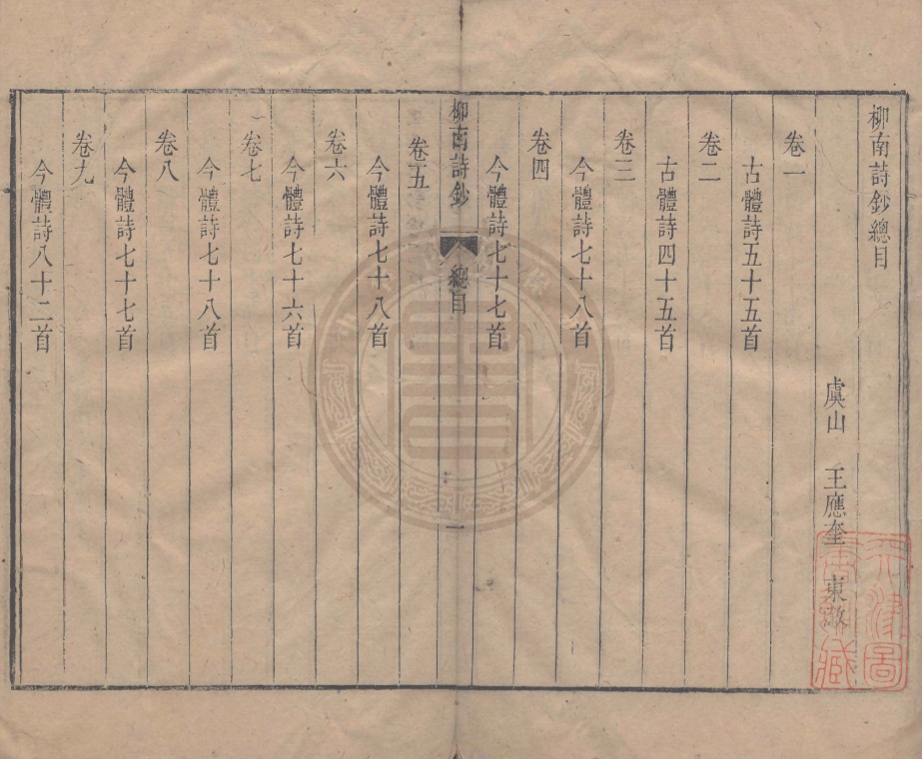 柳南詩鈔總目
虞山　王應奎　東漵
卷一
古體詩五十五首
卷二
古體詩四十五首
卷三
今體詩七十八首
卷四
今體詩七十七首
柳南詩鈔　總目　一
卷五
今體詩七十八首
卷六
今體詩七十六首
卷七
今體詩七十八首
卷八
今體詩七十七首
卷九
今體詩八十二首
天津圖
書館藏